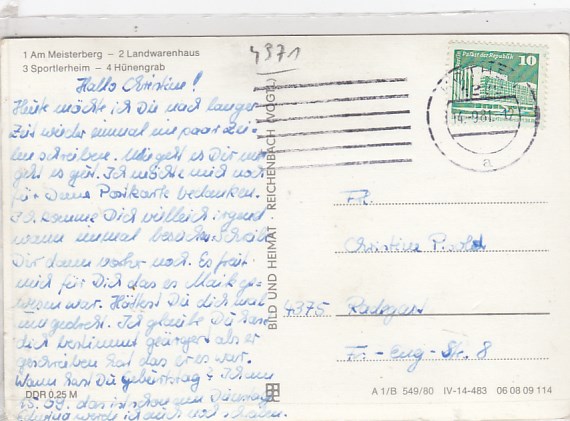 1 Am Meisterberg – 2 Landwarenhaus
3 Sportlerheim – 4 Hünengrab
4371
Hallo Christine!
Heute möchte ich Dir nach langer
Zeit wieder einmal ein paar Zei-
len schreiben. Wie geht es Dir mir
geht es gut. Ich möchte mich noch
für Deine Postkarte bedanken.
Ich komme Dich vielleich irgend
wann einmal besuchen. Schreib
Dir dann vorher noch. Es freut
mich für Dich das es Maik ge-
wesen war. Hättest Du dich mal
umgedreht. Ich glaube Du hast
dich bestimmt geärgert als er
geschrieben hat das er es war.
Wann hast Du Geburtstag? Ich am
15.09. das ist schon am Dienstag
werde ich auch noch
DDR 0,25 M
BILD UND HEIMAT · REICHENBACH (VOGTL.)
Palast der Republik
10
DDR
14.-9.81
a
Fr.
Christine
4375 Radegast
Fr.-Eng-Str. 8
A 1/B 549/80 IV-14-483 06 08 09 114